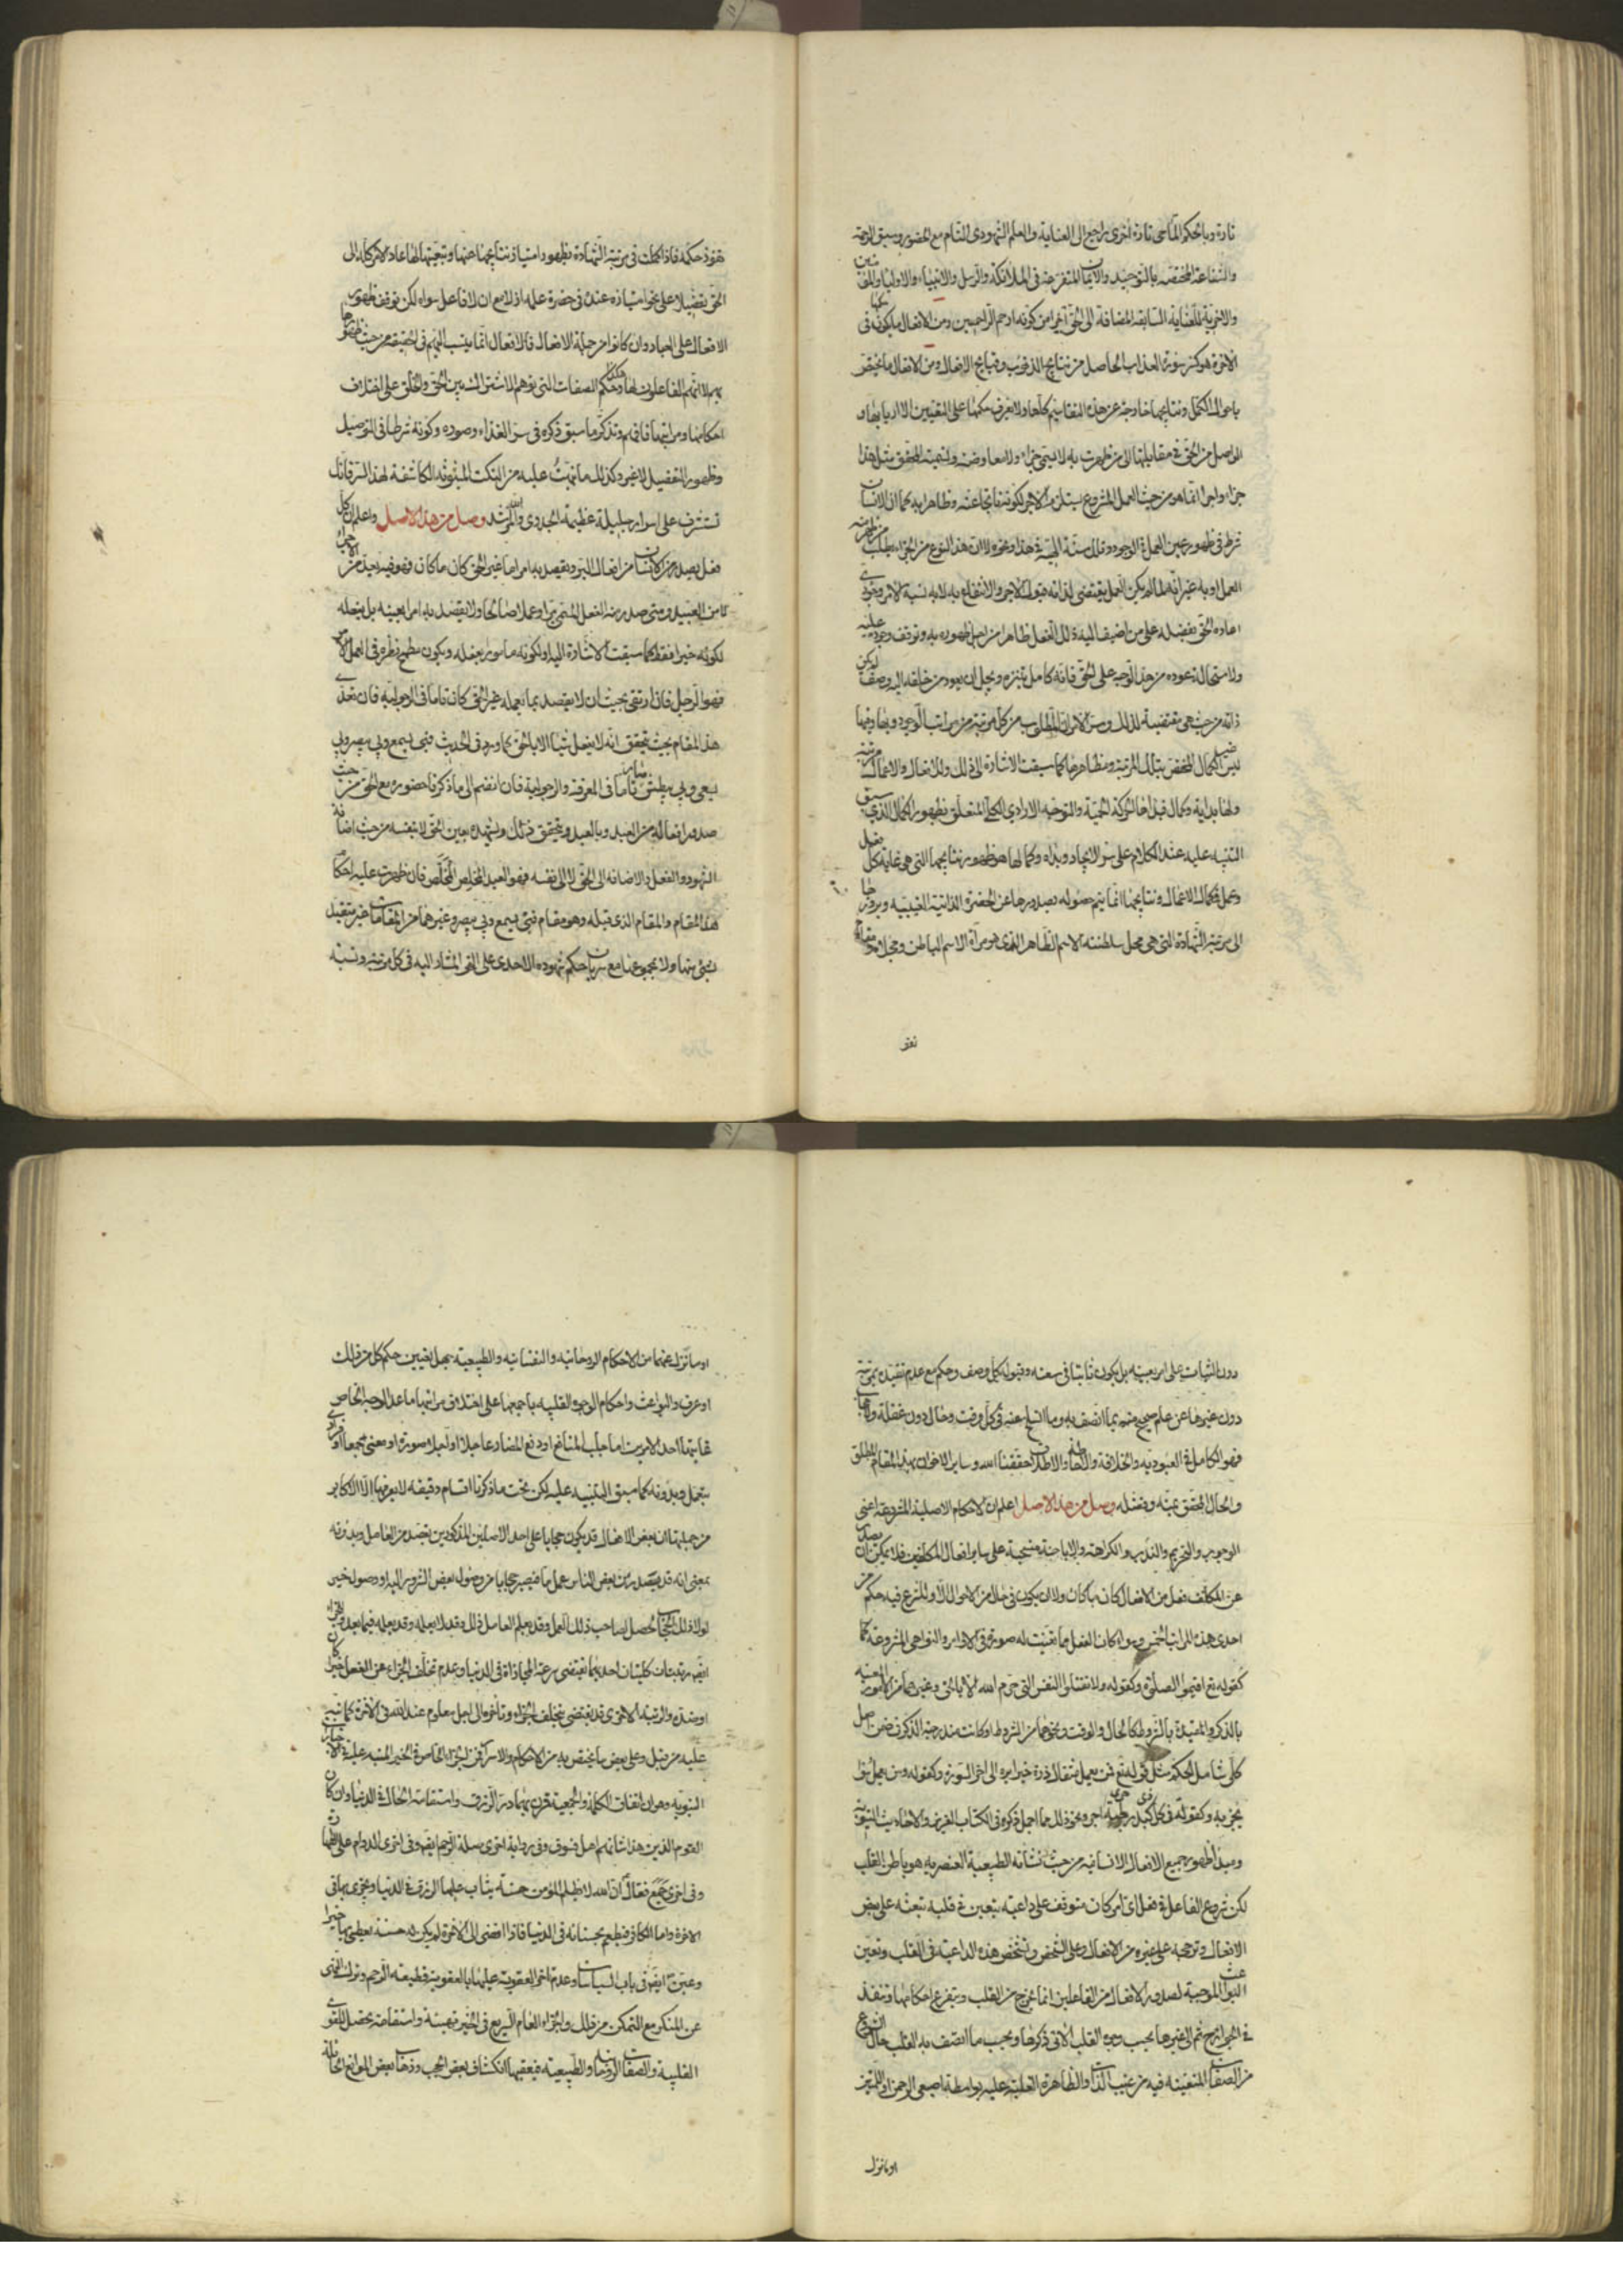 تارة وبالحكم الماحى تارة اخرى راجع الى العناية والعلم الشهودى التام مع الحضور وسبق الرحمة
والشفاعة المختصة بالتوحيد والايمان المتفرعة فى الملائكة والرسل والانبياء والاولياء والمؤمنين
والاخرية للعناية السابقة المضافة الى الحق آخرا من كونه ارحم الراحمين ومن الافعال ما يكون فى
الآخرة هو كسر سورة العذاب الحاصل من نتايج الذنوب وقبايح الافعال ومن الافعال ما يختص
باحوال الكمل ونتايجها خارجة عن هذه التقاسيم كلها ولا يعرف حكمها على التعيين الا اربابها و
الواصل من الحق فى مقابلتها الى من ظهرت به لا يسمى جزاء ولا معاوضة وتسمية المحقق مثل هذا
جزاء واجرا انما هو من حيث العمل المشروع يستلزم الاجر لكونه ناتجا عنه وظاهرا به كما ان الانسان
شرط فى ظهور عين العمل فى الوجود وتلك سنة الهية فى هذا ونحوه الا ان هذا النوع من الجزاء يطلب من ظهر منه
العمل او به غير انه لما لم يكن العمل يقتضى لذاته قبول الاجر والانتفاع به لانه نسبة لا امر وجودى
اعاده الحق بفضله على من اضيف اليه ذلك الفعل ظاهرا من اجل ظهوره به وتوقف وجوده عليه
ولاستحالة عوده من هذا الوجه على الحق فانه كامل يتنزه ويجل ان يعود من خلقه اليه وصف لم يكن
ذاته من حيث هى مقتضية لذلك وسر الامران المطلوب من كل مرتبة من مراتب الوجود وبها وفيها
ليس الا الكمال المختص بتلك المرتبة ومظاهرها كما سبقت الاشارة الى ذلك وللافعال والاعمال مرتبة
ولها بداية وكمال فبداها الحركة الحبية والتوجه الارادى الكلى المتعلق بظهور الكمال الذى سبق
التنبيه عليه عند الكلام على سر الايجاد وبدئه وكمالها هو ظهور نتايجها التى هى غاية كل فعل
وعمل فكمال الاعمال ونتايجها انما يتم حصوله بصدورها عن الحضرة الذاتية الغيبية وبروزها
الى مرتبة الشهادة التى هى محل سلطنة الاسم الظاهر الذى هو مرآة الاسم الباطن ومجلاه ومقام
نفوذ
نفوذ حكمه فاذا كملت فى مرتبة الشهادة بظهور امتياز نتايجها عنها وتبعيتها لها عاد الامر كله الى
الحق تفصيلا على نحو امتيازه عنده فى حضرة علمه اذ لا مع ان لا فاعل سواه لكن توقف ظهور
الافعال على العباد وان كانوا من جملة الافعال فالافعال انما ينسب اليهم فى الحقيقة من حيث ظهورها
بهم لا انهم الفاعلون لها وهكذا حكم الصفات التى توهم الاشتراك بين الحق والخلق على اختلاف
احكامها ومراتبها فافهم وتذكر ما سبق ذكره فى سر الغذاء وصوره وكونه شرطا فى التوصيل
وظهور التفصيل لا غير وكذلك ما نبهت عليه من النكت المبثوثة الكاشفة لهذا السر فانك
تستشرف على اسرار جليلة عظيمة الجدوى والله المرشد وصل من هذا الاصل واعلم ان كل
فعل يصدر من الانسان من افعال البر ويقصد به امرا ما غير الحق كان ما كان فهو فيه اجير من الاجراء
لا من العبيد ومتى صدر منه الفعل المسمى برا وعملا صالحا ولا يقصد به امرا بعينه بل يفعله
لكونه خيرا فقط كما سبقت الاشارة اليه او لكونه مامورا بفعله ويكون مطمح نظره فى العمل الامر
فهو الرجل فان ارتقى بحيث ان لا يقصد بما يعمله غير الحق كان تاما فى الرجولية فان تعدى
هذا المقام بحيث يتحقق انه لا يفعل شيئا الا بالحق كما ورد فى الحديث فبى يسمع وبى يبصر وبى
يسعى وبى يبطش صار تاما فى المعرفة والرجولية فان انضم الى ما ذكرنا حضوره مع الحق من حيث
صدور افعاله من العبد وبالعبد ويتحقق ذلك ويشهده بعين الحق لا بنفسه من حيث اضافة
الشهود والفعل والاضافة الى الحق لا الى نفسه فهو العبد المخلص المخلص فان ظهرت عليه احكام
هذا المقام والمقام الذى قبله وهو مقام فبى يسمع وبى يبصر وغيرهما من المقامات غير متقيد
بشئ منها ولا بمجموعها مع سريان حكم شهوده الاحدى على النحو المشار اليه فى كل مرتبة ونسبة
دون الثبات على امر بعينه بل يكون ثابتا فى سعته وقبوله كل وصف وحكم مع عدم تقيده بمرتبة
دون غيرها عن علم صحيح منه بما اتصف به وما انسلخ عنه فى كل وقت وحال دون غفلة وحجاب
فهو الكامل فى العبودية والخلافة والاحاطة والاطلاق حققنا الله وساير الاخوان بهذا المقام المطلق
والحال المحقق بمنه وفضله وصل من هذا الاصل اعلم ان الاحكام الاصلية المشروعة اعنى
الوجوب والتحريم والندب والكراهة والاباحة منسحبة على ساير افعال المكلفين فلا يمكن ان يصدر
عن المكلف فعل من الافعال كان ما كان ولا ان يكون فى حال من الاحوال الا وللشرع فيه حكم من
احدى هذه المراتب الخمس وسواء كان الفعل مما تعينت له صورة فى الاوامر والنواهى المشروعة كما
كقوله تع اقيموا الصلوة وكقوله ولا تقتلوا النفس التى حرم الله الا بالحق وغيرهما من الامور المعينة
بالذكر والمقيدة بالشروط كالحال والوقت ونحوهما من الشروط او كانت مندرجة الذكر فى ضمن اصل
كلى شامل الحكم مثل قوله تع فمن يعمل مثقال ذرة خيرا يره الى آخر السورة وكقوله ومن يعمل سوءا
يجز به وكقوله فى كل كبد حرى رطبة اجر ونحو ذلك مما اجمل ذكره فى الكتاب العزيز والاحاديث النبوية
ومبدأ ظهور جميع الافعال الانسانية من حيث نشأته الطبيعية العنصرية هو باطن القلب
لكن شروع الفاعل فى فعل اى امر كان متوقف على داعية يتعين فى قلبه تبعثه على بعض
الافعال وترجحه على غيره من الافعال وعلى الشخص وتشخص هذه الداعية فى القلب وتعين
البواعث الموجبة لصدور الافعال من الفاعلين انما يخرج من القلب ويتفرع احكامها وتنفذ
فى الجوارح ثم الى غيرها بحسب وجوه القلب الآتى ذكرها وبحسب ما اتصف به القلب حال الشروع
من الصفات المتعينة فيه من غيب الذات والظاهرة الغلبة عليه بواسطة اصبعى الرحمن او اللمتين
او ما نزل
او ما نزل عنهما من الاحكام الروحانية والنفسانية والطبيعية يجهل تعيين حكم كل من ذلك
او عرف والبواعث واحكام الوجوه القلبية باجمعها على اختلاف مراتبها ما عدا الوجه الخاص
غايتها احد الامرين اما جلب المنافع او دفع المضار عاجلا او آجلا صورة او معنى جمعا او فرادى
بتعمل وبدونه كما سبق التنبيه عليه لكن تحت ما ذكرنا اقسام دقيقة لا يعرفها الا الاكابر
من جملتها ان بعض الافعال قد يكون حجابا على احد الاصلين المذكورين بقصد من العامل وبدونه
بمعنى انه قد يصدر من بعض الناس عمل ما فيصير حجابا من وصول بعض الشرور اليه او وصول خير
لولا ذلك الحجاب لحصل لصاحب ذلك العمل وقد يعلم العامل ذلك وقد لا يعلمه وقد يعلمه فيما بعد وللجزاء
ايضا مرتبتان كليتان احديهما تقتضى سرعة المجازاة فى الدنيا وعدم تخلف الجزاء عن الفعل خيرا كان
او ضده والرتبة الاخرى قد يقتضى تخلف الجزاء وتاخره الى اجل معلوم عند الله فى الآخرة كما نبه
عليه من قبل وعلى بعض ما يختص به من الاحكام والاسرار فمن الجزاء الخاص فى الخير المنبه عليه فى الاخبار
النبوية وهو ان اتفاق الكلمة والجمعية قرن بهما درّ الرزق واستقامة الحال فى الدنيا وان كان
القوم الذين هذا شانهم اهل فسوق وفى رواية اخرى صلة الرحم ايضا وفى اخرى الدوام على الطهارة
وفى اخرى جمع فقال ان الله لا يظلم المؤمن حسنة يثاب عليها الرزق فى الدنيا ويجزى بها فى
الآخرة واما الكافر فيطعم بحسناته فى الدنيا فاذا افضى الى الآخرة لم يكن له حسنة يعطى بها خيرا
وعين ايضا فى باب السياسات وعدم تاخر العقوبة عليها بالعقوبة قطيعة الرحم وترك النهى
عن المنكر مع التمكن من ذلك والجزاء العام السريع فى الخير تهيئة واستقامة يحصل للقوى
القلبية والصفات الروحانية والطبيعية فيعقبها انكشاف بعض الحجب وذهاب بعض الموانع الحائلة